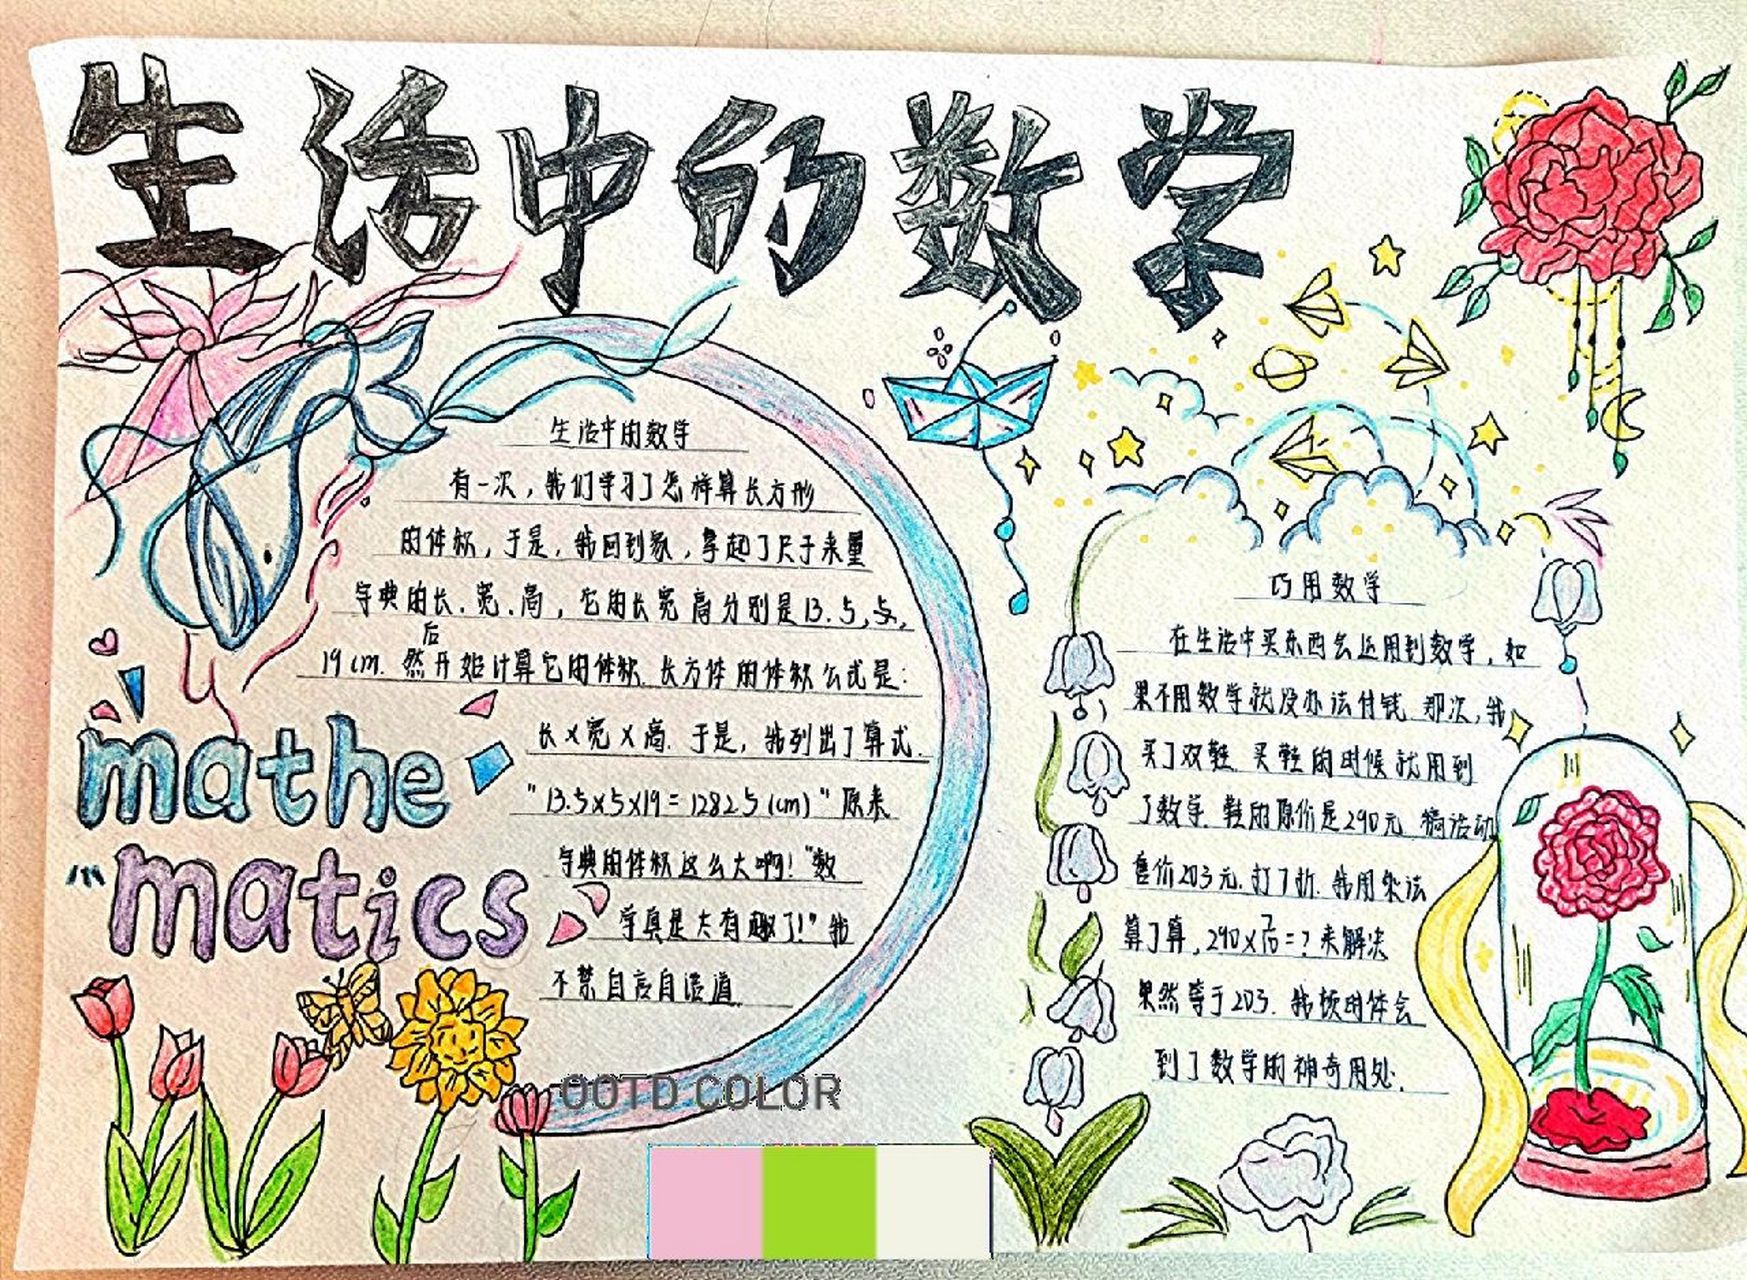 生活中的数学
生活中的数学
有一次，我们学习了怎样算长方形
的体积，于是，我回到家，拿起了尺子来量
字典的长.宽.高，它的长宽高分别是13.5,5,
19cm. 然后开始计算它的体积. 长方体的体积公式是：
长×宽×高. 于是，我列出了算式.
"13.5×5×19=1282.5(cm)"原来
字典的体积这么大啊！"数
学真是太有趣了！"我
不禁自言自语道.
mathe
matics
巧用数学
在生活中买东西会运用到数学，如
果不用数学就没办法付钱. 那次,我
买了双鞋. 买鞋的时候就用到
了数学. 鞋的原价是290元 搞活动
售价203元.打7折. 我用乘法
算了算，290×=？来解决
果然等于203. 我顿时体会
到了数学的神奇用处.
OOTD COLOR